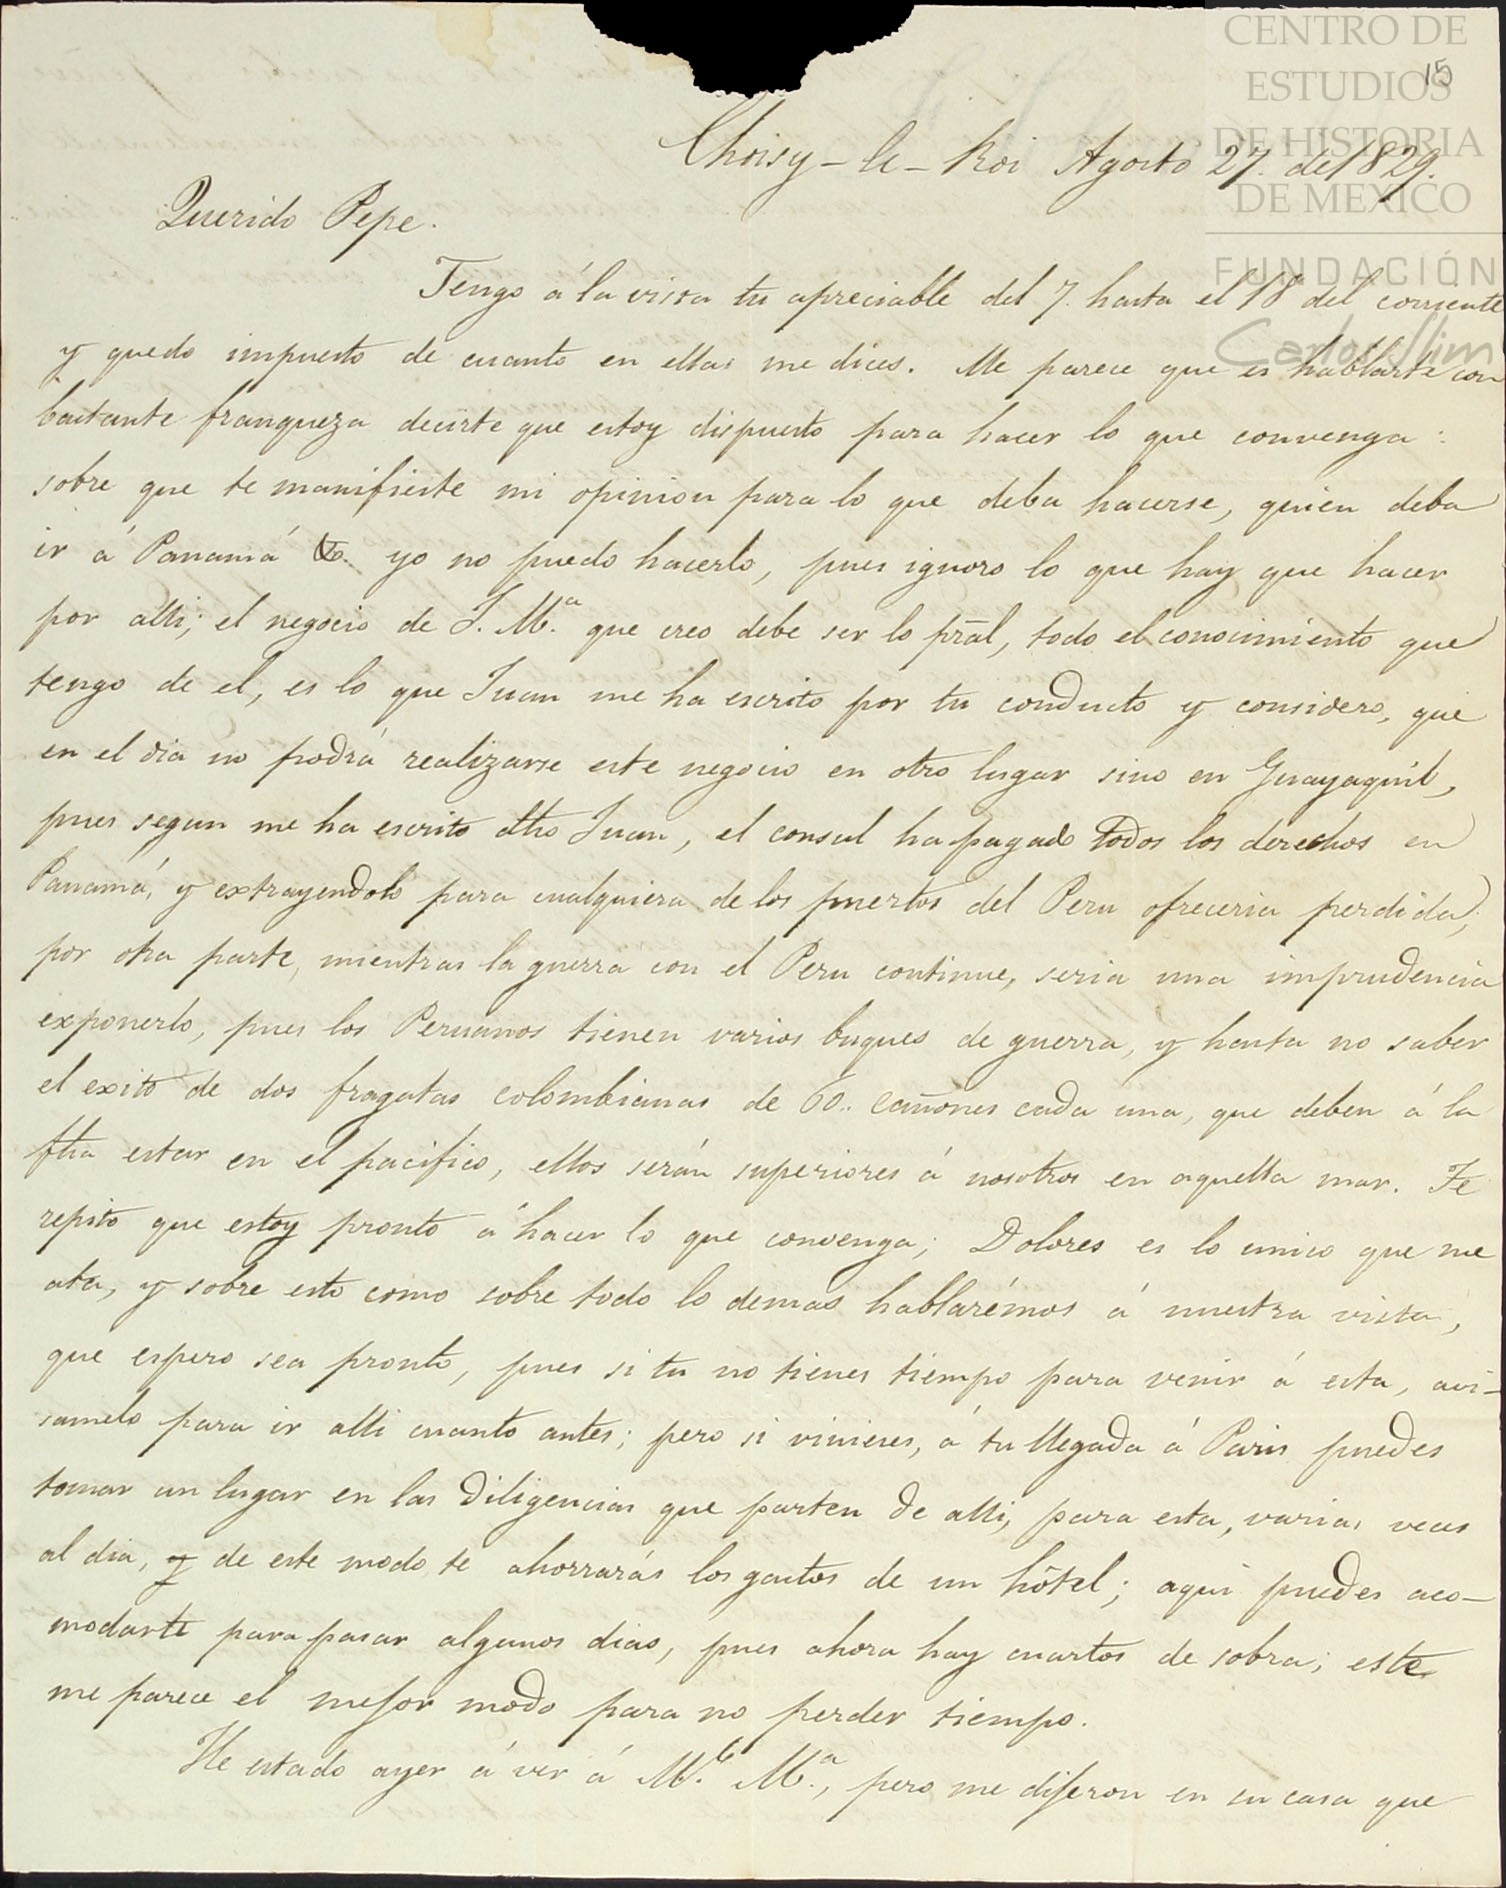 CENTRO DE
ESTUDIOS
DE HISTORIA
DE MEXICO
FUNDACIÓN
Carlos Slim
15
Choisy-le-Roi Agosto 27. de 1829.
Querido Pepe.
Tengo á la vista tu apreciable del 7. hasta el 18 del corriente
y quedo impuesto de cuanto en ellas me dices. Me parece que es hablarte con
bastante franqueza decirte que estoy dispuesto para hacer lo que convenga:
sobre que te manifieste mi opinion para lo que deba hacerse, quien deba
ir á Panamá &a. yo no puedo hacerlo, pues ignoro lo que hay que hacer
por alli; el negocio de J. M.a que creo debe ser lo prãl, todo el conocimiento que
tengo de el, es lo que Juan me ha escrito por tu conducto y considero, que
en el dia no podrá realizarse este negocio en otro lugar sino en Guayaquil,
pues segun me ha escrito dho Juan, el consul ha pagado todos los derechos en
Panamá, y extrayendolo para cualquiera de los puertos del Peru ofreceria perdida;
por otra parte, mientras la guerra con el Peru continue, seria una imprudencia
exponerlo, pues los Peruanos tienen varios buques de guerra, y hasta no saber
el exito de dos fragatas colombianas de 60.. cañones cada una, que deben á la
fha estar en el pacifico, ellos serán superiores á nosotros en aquella mar. Te
repito que estoy pronto á hacer lo que convenga; Dolores es lo unico que me
ata, y sobre esto como sobre todo lo demas hablarémos á nuestra vista,
que espero sea pronto, pues si tu no tienes tiempo para venir á esta, avi-
samelo para ir alli cuanto antes; pero si vinieres, á tu llegada á Paris puedes
tomar un lugar en las Diligencias que parten de alli, para esta, varias veces
al dia, y de este modo te ahorrarás los gastos de un hôtel; aqui puedes aco-
modarte para pasar algunos dias, pues ahora hay cuartos de sobra; este
me parece el mejor modo para no perder tiempo.
He estado ayer á ver á M.l M.a, pero me dijeron en su casa que